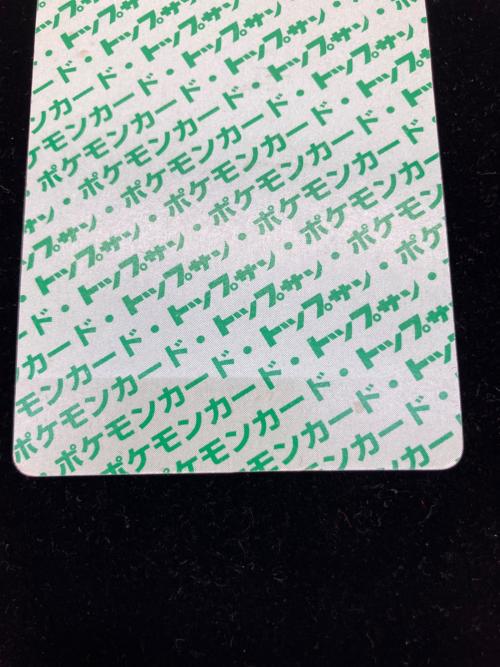 トップサン
ド・トップサン・
ンカード・トップサン・
ケモンカード・トップサン
ポケモンカード・トップサン
・ポケモンカード・トップ
サン・ポケモンカード・
トップサン・ポケモンカード・
・トップサン・ポケモンカード
ード・トップサン・ポケモンカード
カード・トップサン・ポケモン
モンカード・トップサン・ポケ
ポケモンカード・トップサン・
ポケモンカード・トップサン
ポケモンカード・トップ
ケモンカード・
モンカー